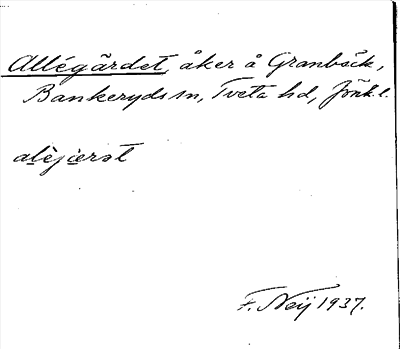 Allégärdet, åker å Granbäck,
Bankeryds sn, Tveta hd, Jönk. l.
alèjierət
F. Neij 1937.